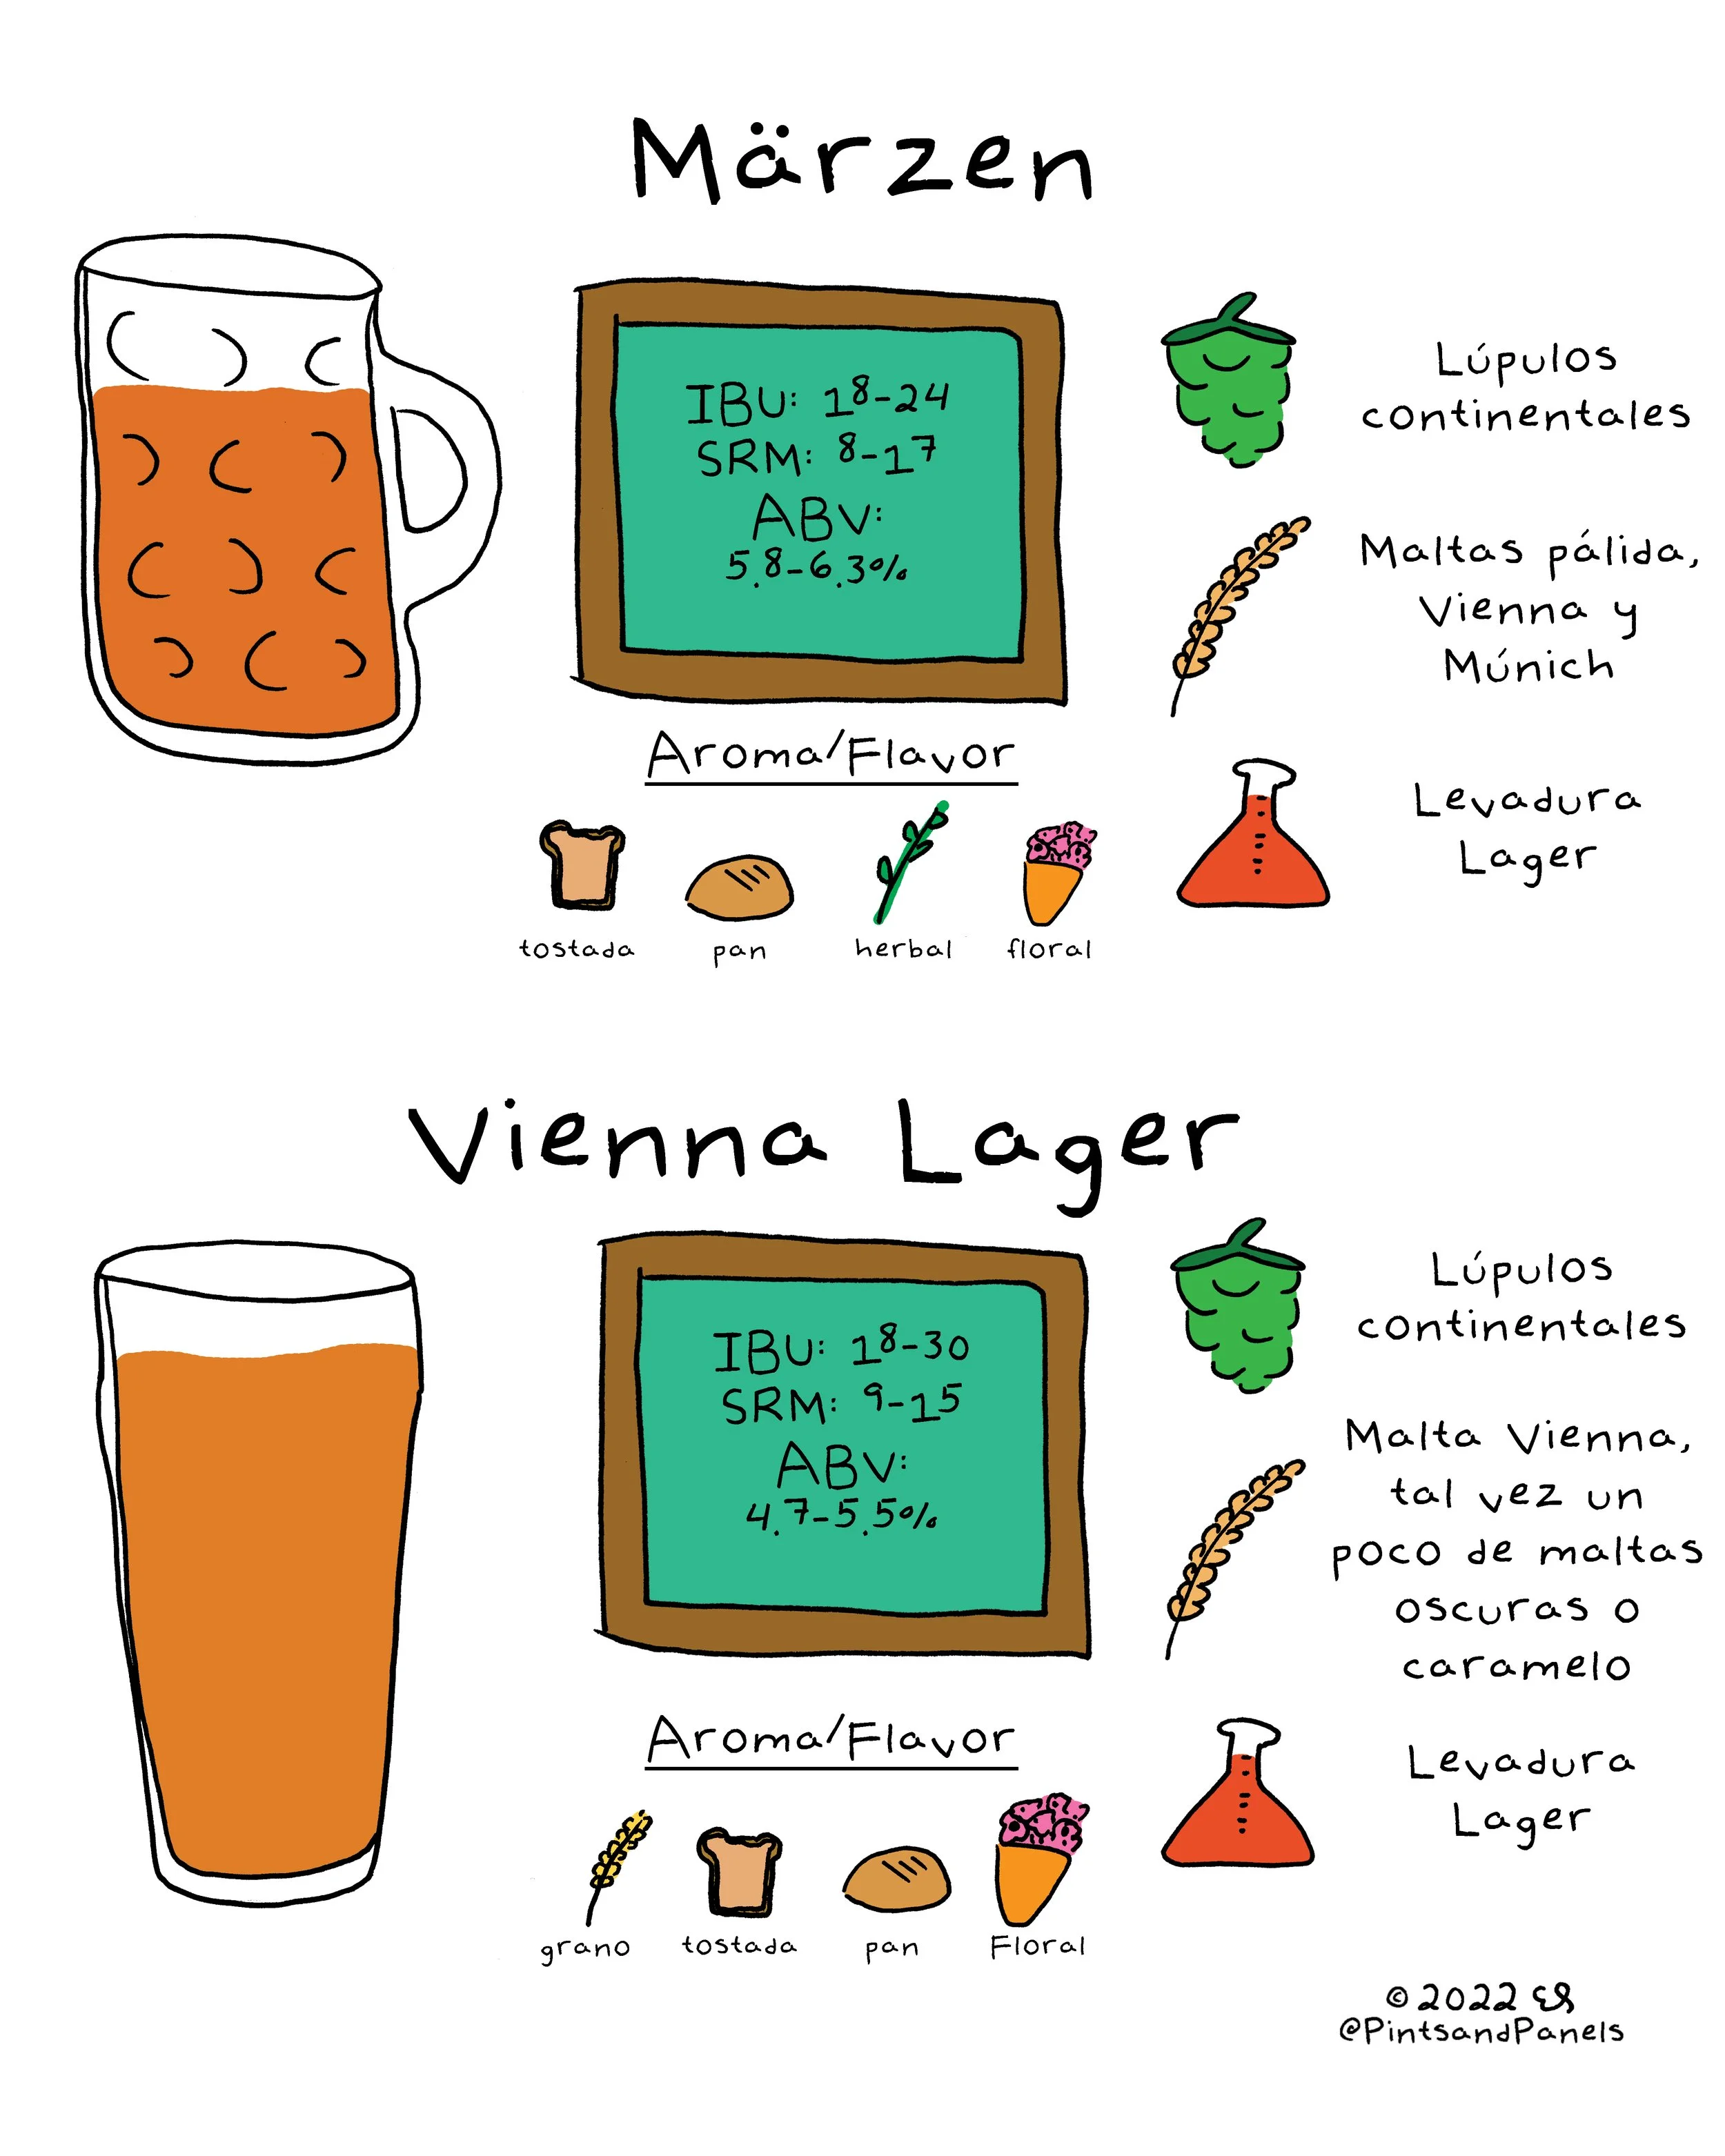 Märzen
IBU: 18-24
SRM: 8-17
ABV:
5.8-6.3%
Lúpulos
continentales
Maltas pálida,
Vienna y
Múnich
Levadura
Lager
Aroma/Flavor
tostada
pan
herbal
floral
Vienna Lager
IBU: 18-30
SRM: 9-15
ABV:
4.7-5.5%
Lúpulos
continentales
Malta Vienna,
tal vez un
poco de maltas
oscuras o
caramelo
Levadura
Lager
Aroma/Flavor
grano
tostada
pan
Floral
© 2022
@PintsandPanels